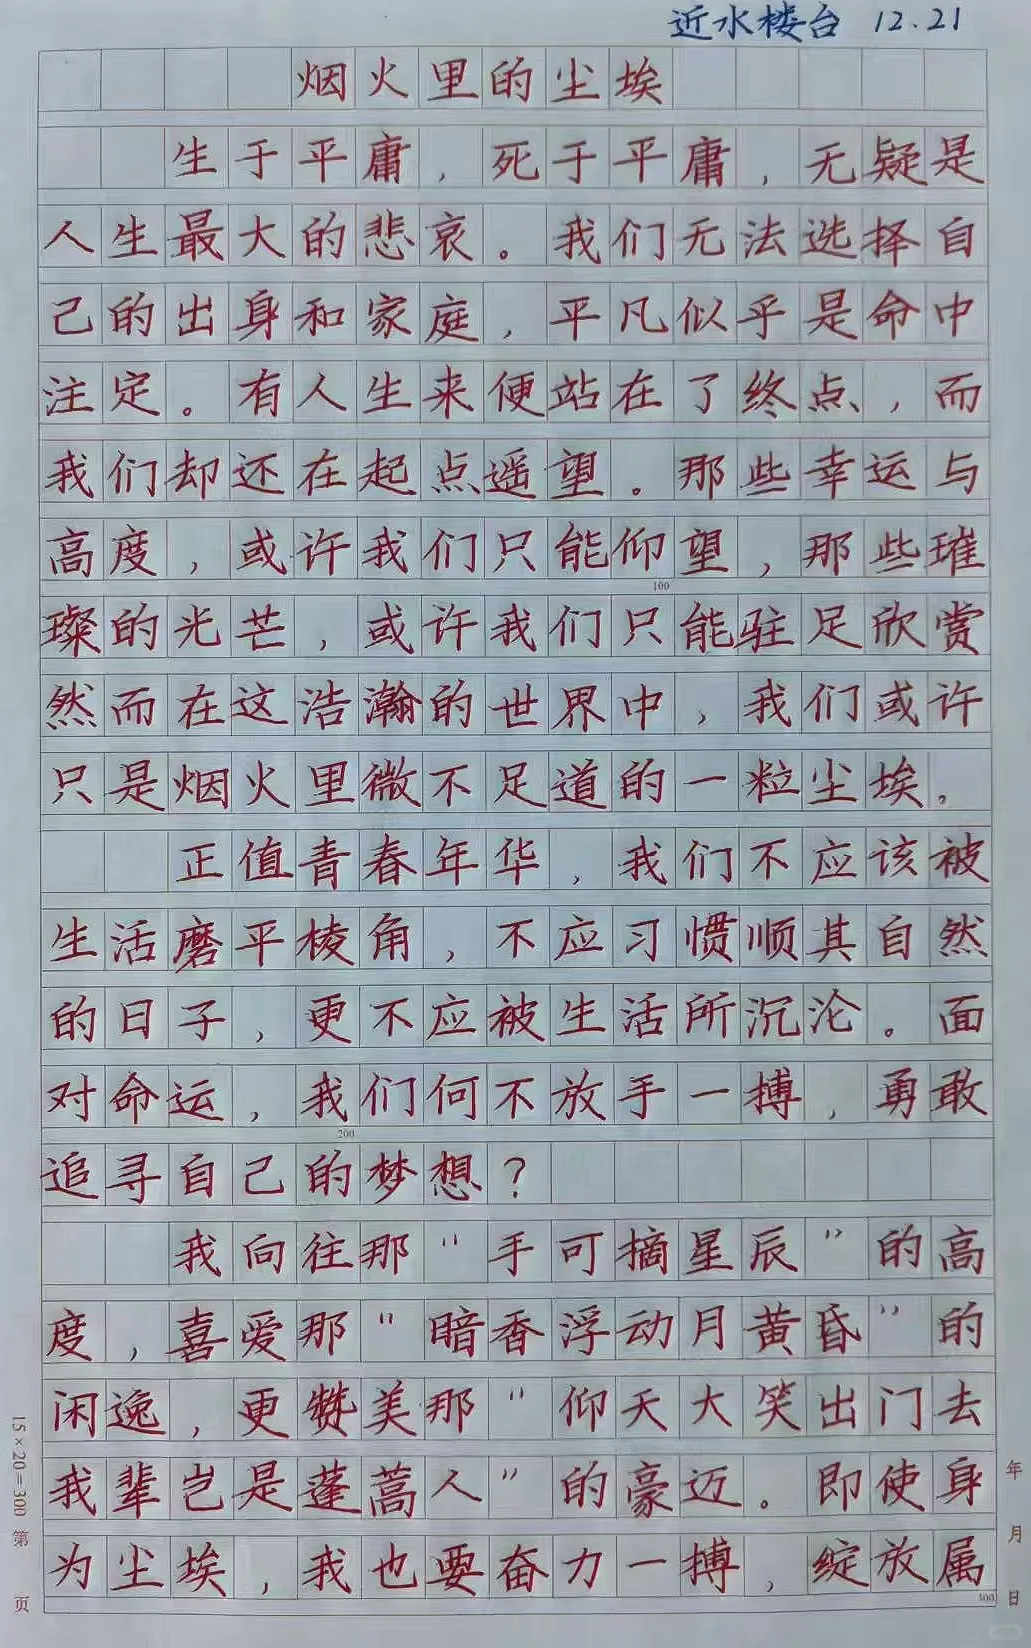 近水楼台 12.21
烟火里的尘埃
生于平庸，死于平庸，无疑是
人生最大的悲哀。我们无法选择自
己的出身和家庭，平凡似乎是命中
注定。有人生来便站在了终点，而
我们却还在起点遥望。那些幸运与
高度，或许我们只能仰望，那些璀
100
璨的光芒，或许我们只能驻足欣赏
然而在这浩瀚的世界中，我们或许
只是烟火里微不足道的一粒尘埃。
正值青春年华，我们不应该被
生活磨平棱角，不应习惯顺其自然
的日子，更不应被生活所沉沦。面
对命运，我们何不放手一搏，勇敢
200
追寻自己的梦想？
我向往那“手可摘星辰”的高
度，喜爱那“暗香浮动月黄昏”的
闲逸，更赞美那“仰天大笑出门去
我辈岂是蓬蒿人”的豪迈。即使身
为尘埃，我也要奋力一搏，绽放属
300
15×20=300 第 页
年 月 日